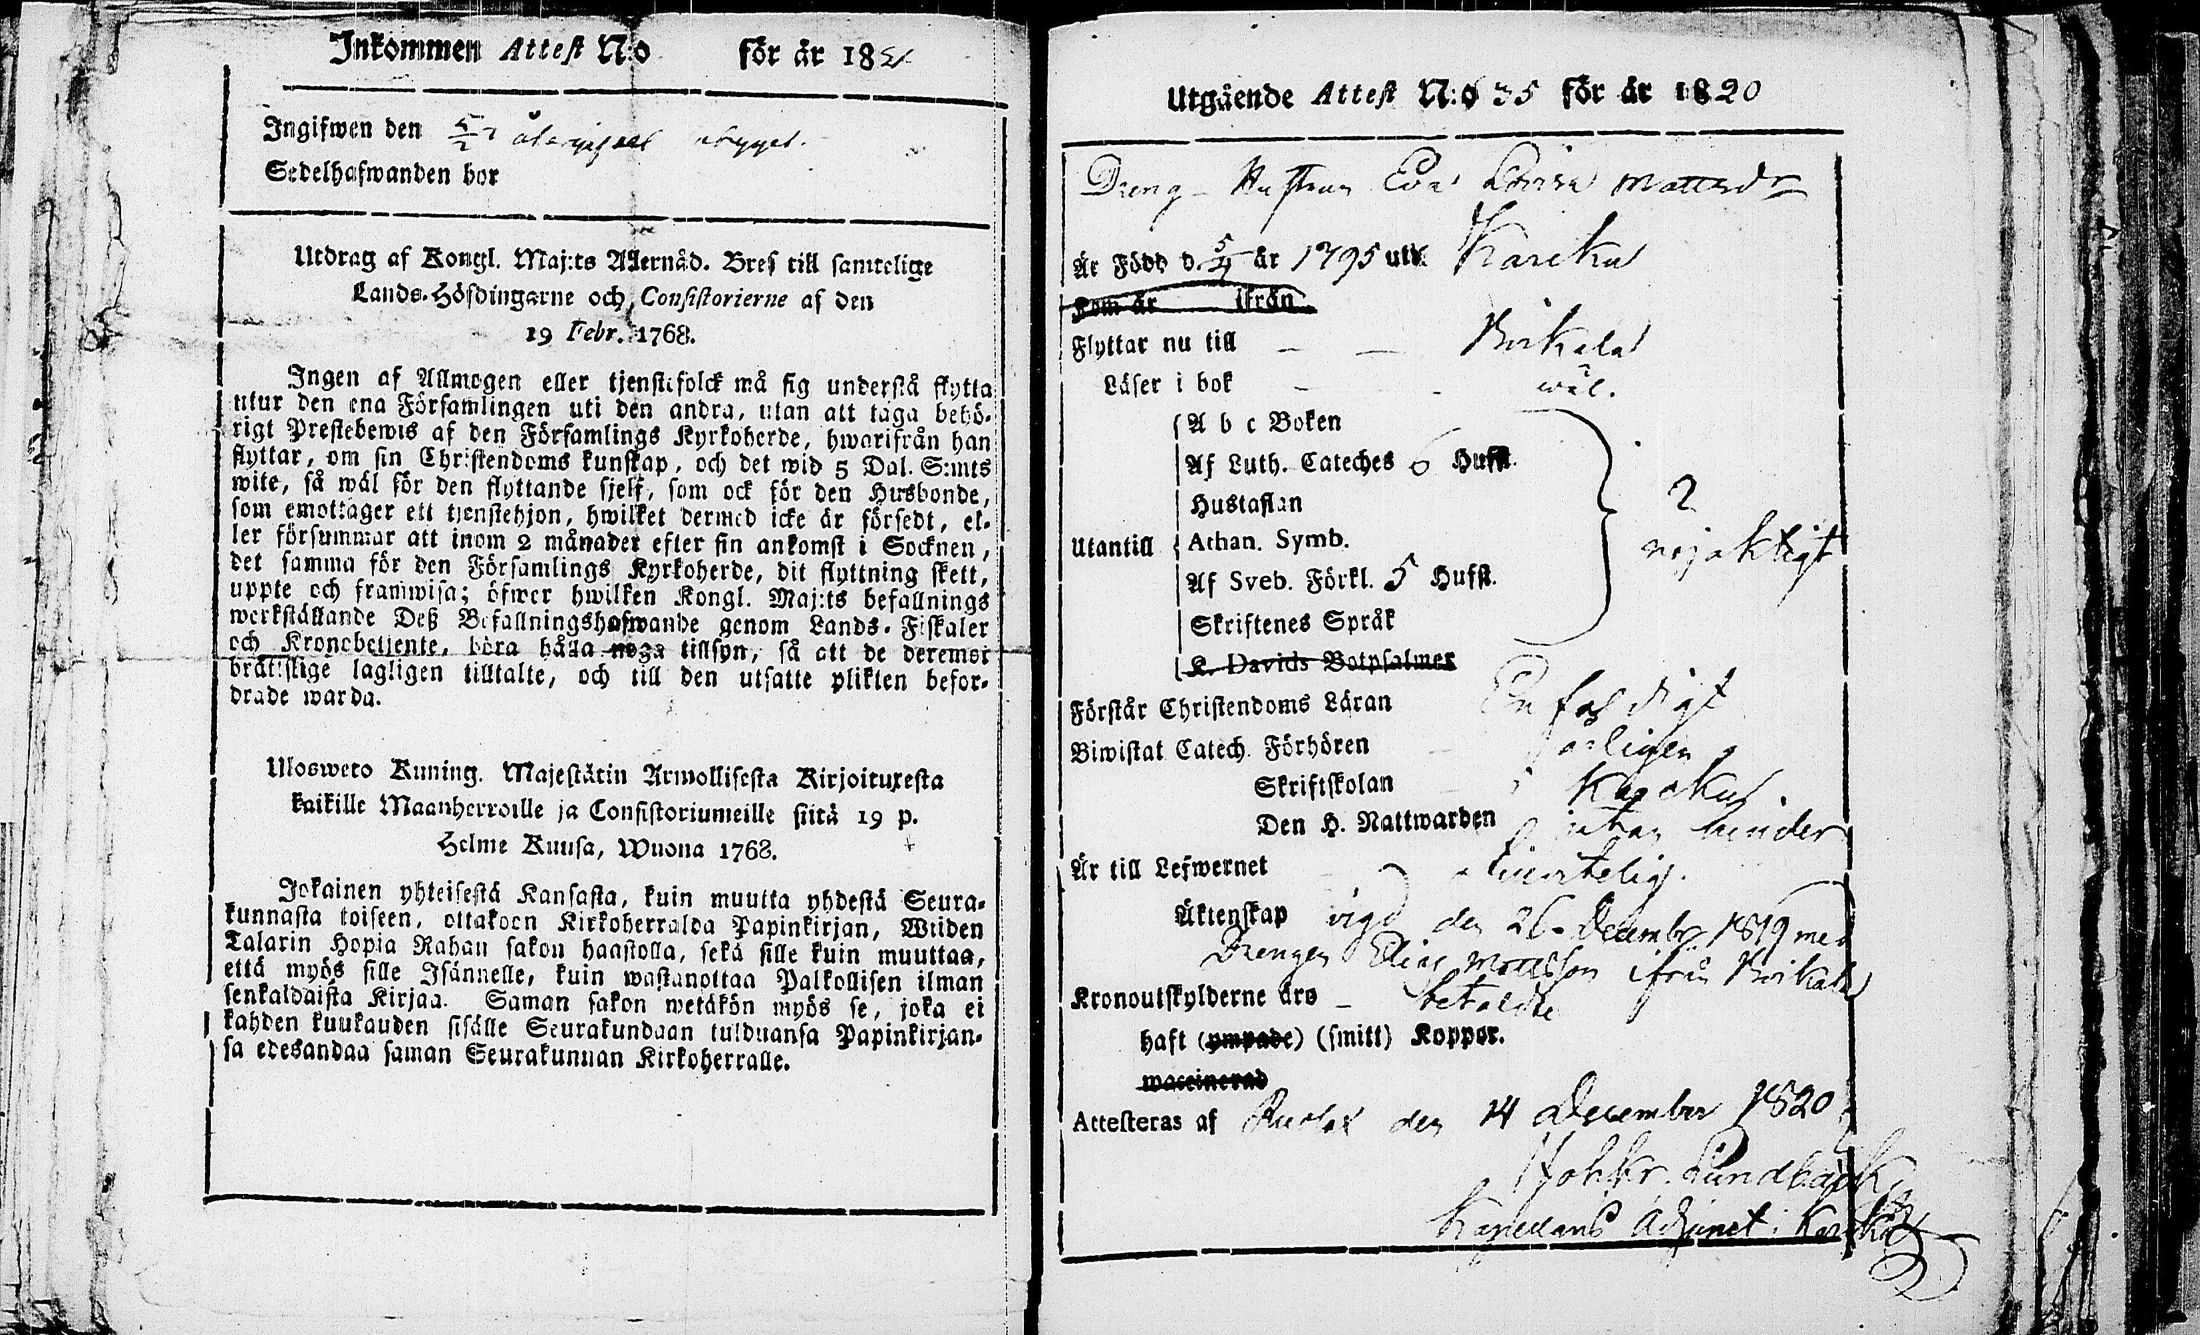 Inkommen Attest N:o för år 1821
Ingifwen den 5/2
Sedelhafwanden bor
Utdrag af Kongl. Maj:ts Allernåd. Bref till samtelige
Lands-Höfdingarne och Consistorierne af den
19 Febr. 1768.
Ingen af Allmogen eller tjenstefolck må sig understå flytta
utur den ena Församlingen uti den andra, utan att taga behö-
rigt Prestebewis af den Församlings Kyrkoherde, hwarifrån han
flyttar, om sin Christendoms kunskap, och det wid 5 Dal. S:mts
wite, så wäl för den flyttande sjelf, som ock för den Husbonde,
som emottager ett tjenstehjon, hwilket dermed icke är försedt, el-
ler försummar att inom 2 månader efter sin ankomst i Socknen,
det samma för den Församlings Kyrkoherde, dit flyttning skett,
uppte och framwisa; öfwer hwilken Kongl. Maj:ts befallnings
werkställande Deß Befallningshafwande genom Lands-Fiskaler
och Kronobetjente, böra hålla noga tillsyn, så att de deremot
brättslige lagligen tilltalte, och till den utsatte plikten befor-
drade warda.
Ulosweto Kuning. Majestätin Armollisesta Kirjoituxesta
kaikille Maanherroille ja Consistoriumeille siitä 19 p.
Helme Kuusa, Wuona 1768.
Jokainen yhteisestä Kansasta, kuin muutta yhdestä Seura-
kunnasta toiseen, ottakoon Kirkoherralda Papinkirjan, Wiiden
Talarin Hopia Rahan sakon haastolla, sekä sille kuin muuttaa,
että myös sille Isännelle, kuin wastanottaa Palkollisen ilman
senkaldaista Kirjaa. Saman sakon wetäkön myös se, joka ei
kahden kuukauden sisälle Seurakundaan tulduansa Papinkirjan-
sa edesandaa saman Seurakunnan Kirkoherralle.
Utgående Attest N:o 35 för år 1820
Dreng Hustrun Eva Lovisa Mattsdr
Är Född d. 5/4 år 1795 uti Karcku
Kom år ifrån
Flyttar nu till Birkala
Läser i bok wäl.
A b c Boken
Af Luth. Cateches 6 Hufst.
Hustaflan
Utantill Athan. Symb. nöjaktigt
Af Sveb. Förkl. 5 Hufst.
Skriftenes Språk
K. Davids Botpsalmer
Förstår Christendoms Läran Enfaldigt
Biwistat Catech. Förhören årligen
Skriftskolan i Karcku.
Den H. Nattwarden utan hinder
Är till Lefwernet
Äktenskap vigd den 26 December 1819 med
Drengen Elias Mattsson ifrån Birkala
Kronoutskylderne äro betaldte
haft (ympade) (smitt) Koppor.
waccinerad
Attesteras af den 14 December 1820
Joh. Kr. Lundbäck
Kapellans Adjunct i Karcku